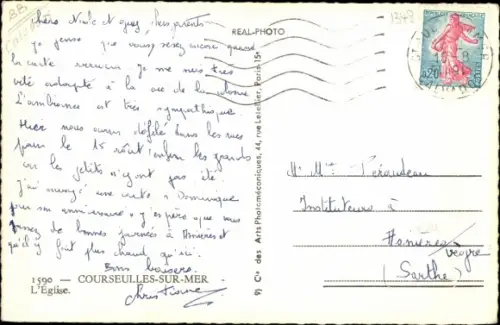 REAL-PHOTO
0,20
chère Nicole et
Je pense que vous serez encore
la carte. Je me
à la vie de la colonie
L'ambiance est très sympathique
Hier nous avons défilé dans les rues
pour le 15 août, les grands
car les petits n'y ont pas été.
J'ai envoyé une carte à Dominique
pour son anniversaire. J'espère que vous
de bonnes journées à Asnières et
qu'il y fait plus chaud qu'ici.
Bons baisers
Christiane
1590 — COURSEULLES-SUR-MER
L'Église.
9) Cie des Arts Photomécaniques, 44, rue Letellier, Paris-15e
M. Mme
Instituteurs à
Asnières
(Sarthe)